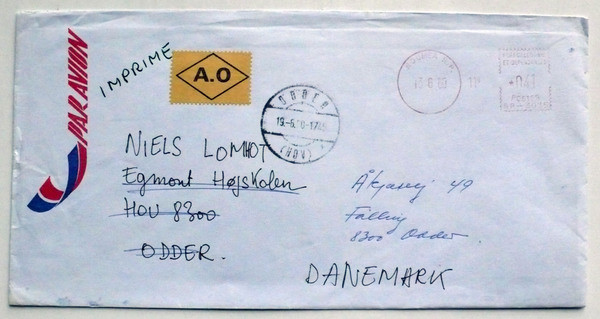 PAR AVION
IMPRIME
A.O
ODDER
19.-6.
(HOV)
NIELS LOMHOT
Egmont Højskolen
HOU 8300
ODDER.
Åkjærvej 49
Falling
8300 Odder.
DANEMARK